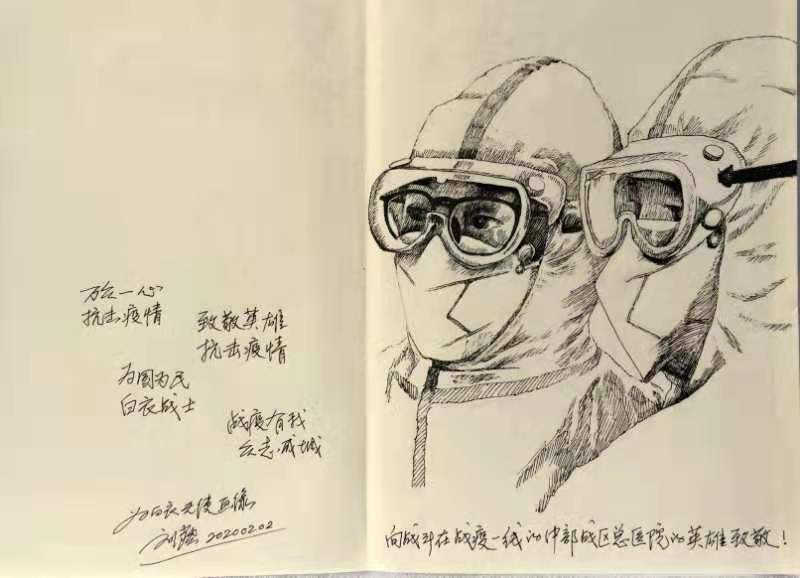 万众一心
抗击疫情
致敬英雄
抗击疫情
为国为民
白衣战士
战疫有我
众志成城
为白衣天使画像
20200202
向战斗在战疫一线的中部战区总医院的英雄致敬！